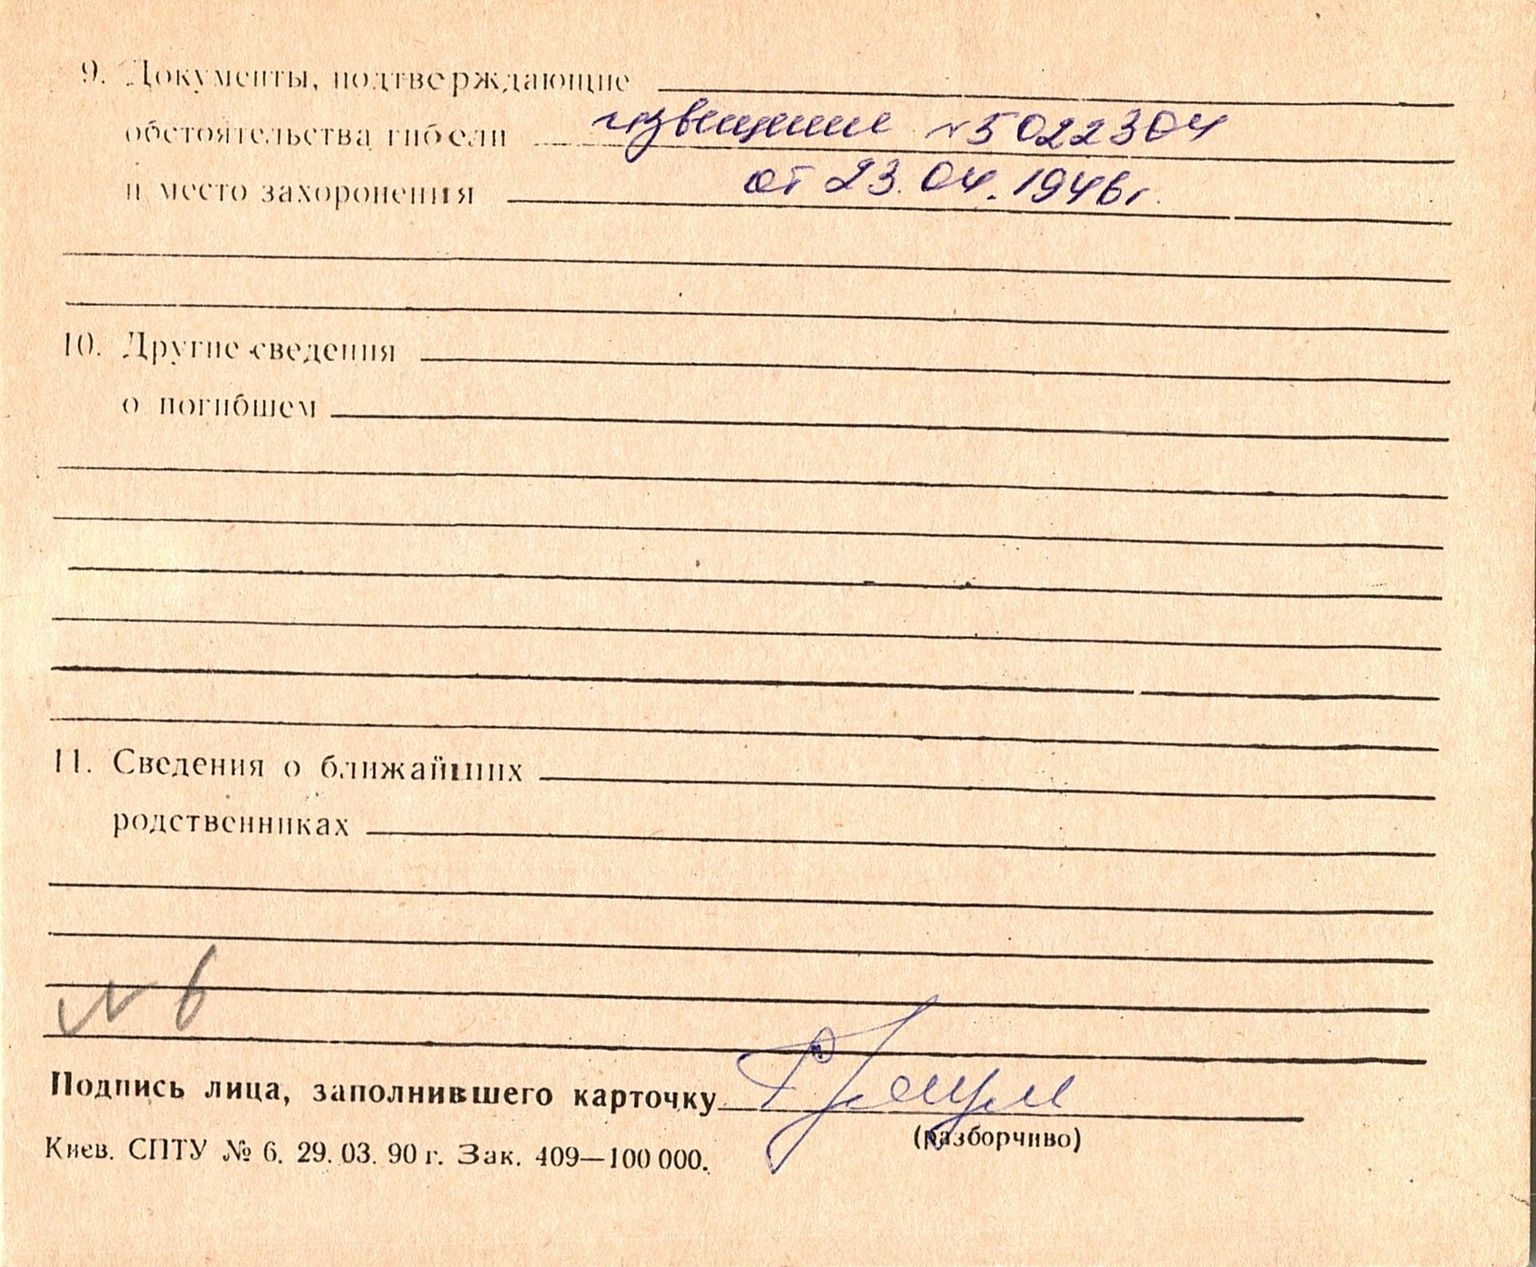 9. Документы, подтверждающие
обстоятельства гибели извещение №5022304
и место захоронения от 23.04.1946г.
10. Другие сведения
о погибшем
11. Сведения о ближайших
родственниках
№ 6
Подпись лица, заполнившего карточку
(разборчиво)
Киев. СПТУ № 6. 29. 03. 90 г. Зак. 409—100 000.